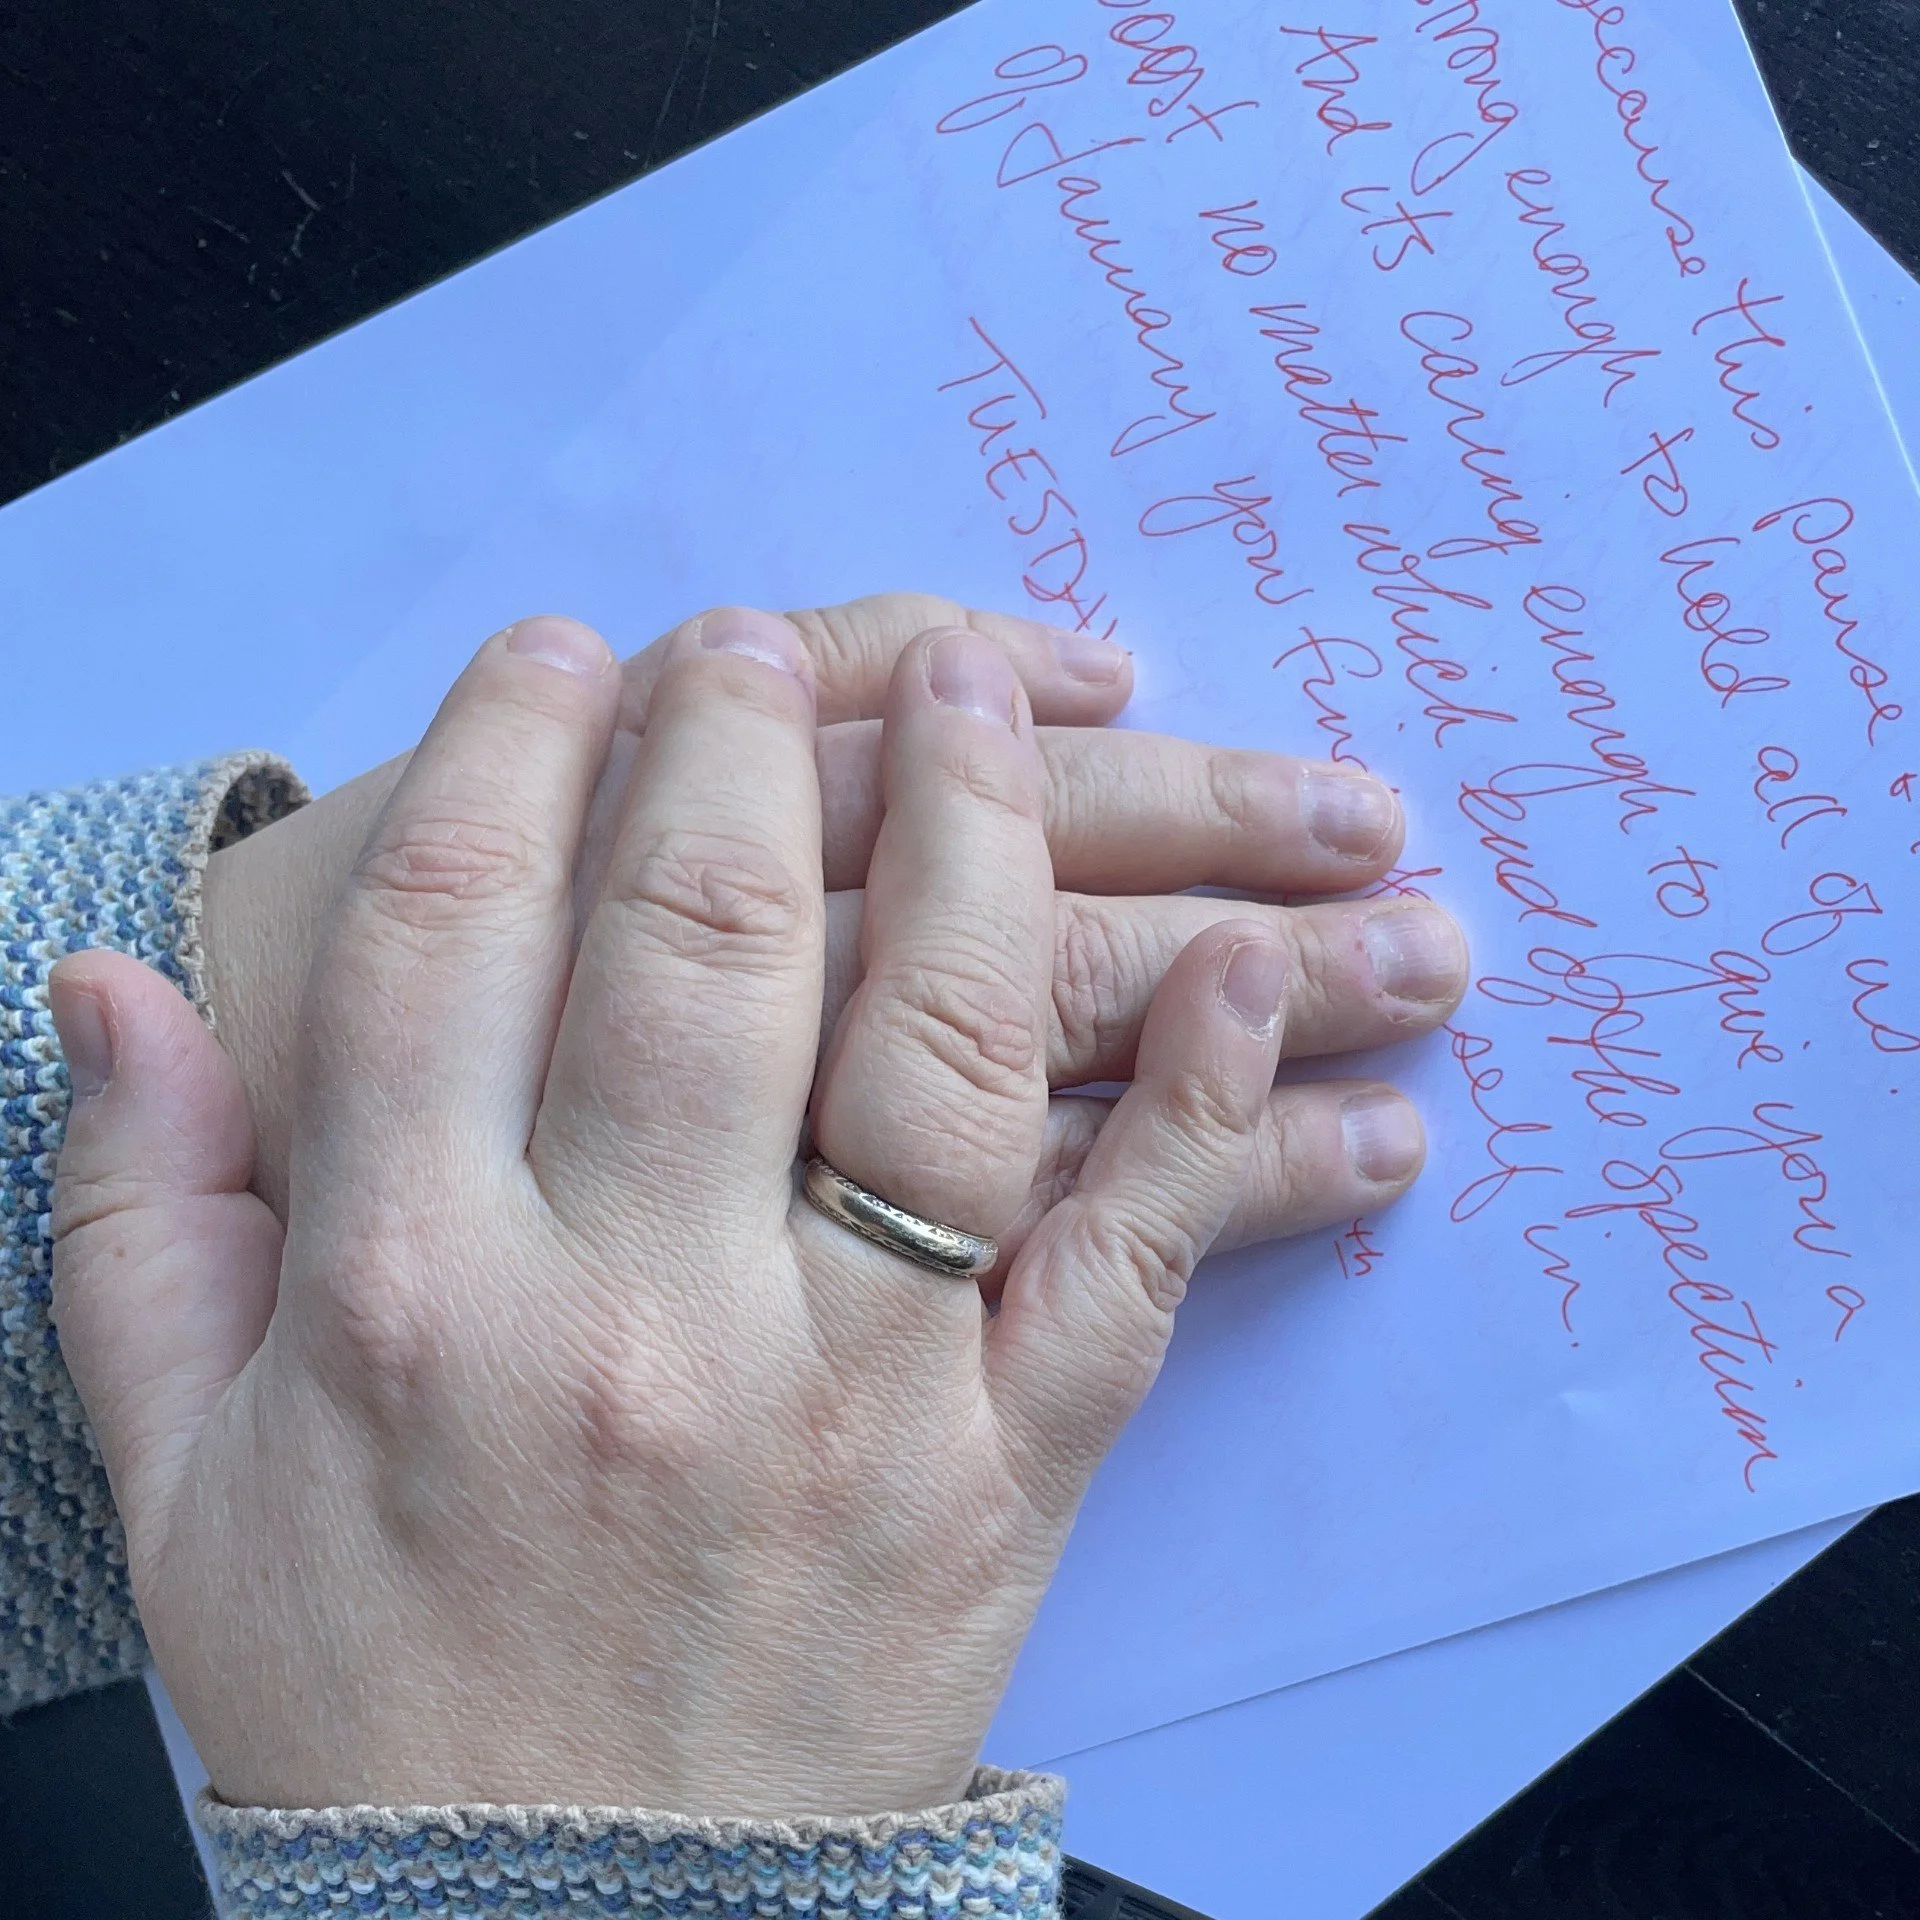 because this pause
strong enough to hold all of us
And its caring enough to give you a
boost no matter which end of the spectrum
of January you self in.
TUESDAY th